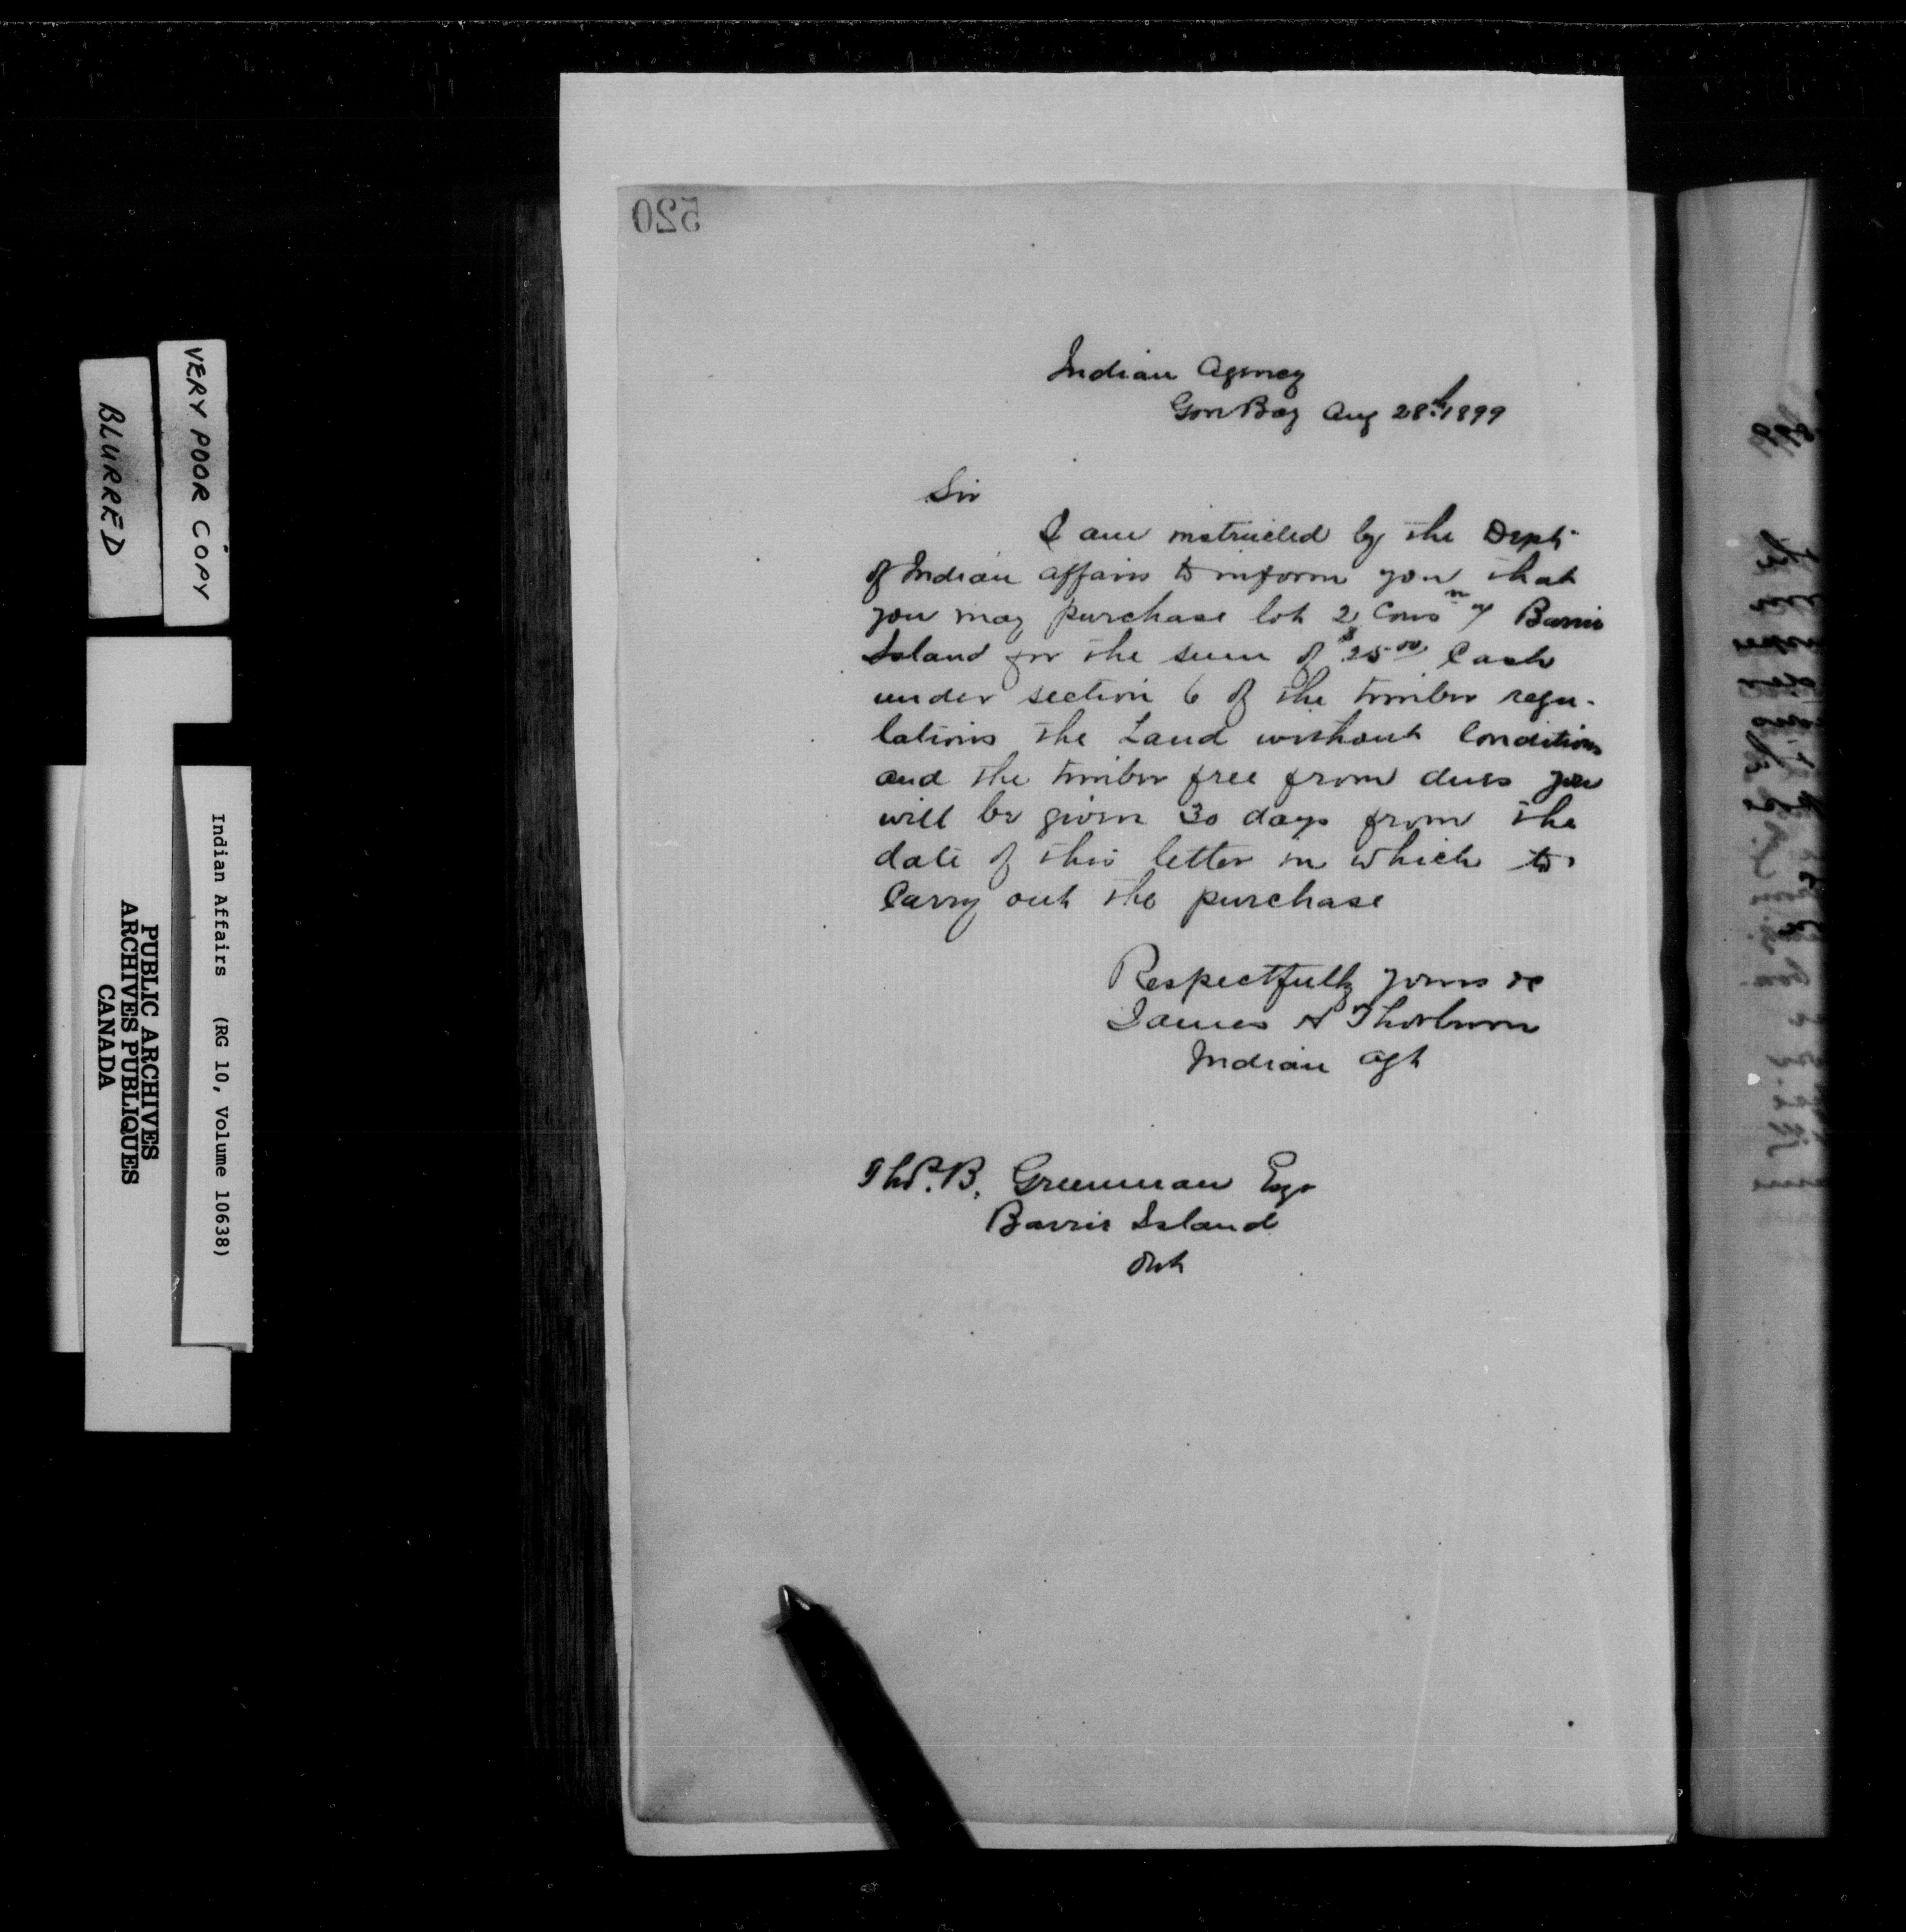 520
Indian Agency
Gore Bay Aug 28th 1899
Sir
I am instructed by the Dept
of Indian Affairs to inform you that
you may purchase lot 2 Conn Barrie
Island for the sum of $25.00 Cash
under section 6 of the timber regu-
lations the Land without Conditions
and the timber free from dues you
will be given 30 days from the
date of this letter in which to
Carry out the purchase
Respectfully yours &c
James H Thorburn
Indian Agt
Thos. B. Greenman Esqr
Barrie Island
Ont
VERY POOR COPY
BLURRED
Indian Affairs (RG 10, Volume 10638)
PUBLIC ARCHIVES
ARCHIVES PUBLIQUES
CANADA